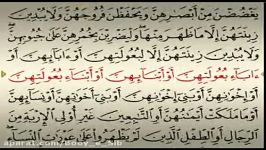 يَغْضُضْنَ مِنْ أَبْصَٰرِهِنَّ وَيَحْفَظْنَ فُرُوجَهُنَّ وَلَا يُبْدِينَ
زِينَتَهُنَّ إِلَّا مَا ظَهَرَ مِنْهَا وَلْيَضْرِبْنَ بِخُمُرِهِنَّ عَلَىٰ جُيُوبِهِنَّ
وَلَا يُبْدِينَ زِينَتَهُنَّ إِلَّا لِبُعُولَتِهِنَّ أَوْ ءَابَآئِهِنَّ أَوْ
ءَابَآءِ بُعُولَتِهِنَّ أَوْ أَبْنَآئِهِنَّ أَوْ أَبْنَآءِ بُعُولَتِهِنَّ
أَوْ إِخْوَٰنِهِنَّ أَوْ بَنِىٓ إِخْوَٰنِهِنَّ أَوْ بَنِىٓ أَخَوَٰتِهِنَّ أَوْ نِسَآئِهِنَّ
أَوْ مَا مَلَكَتْ أَيْمَٰنُهُنَّ أَوِ ٱلتَّٰبِعِينَ غَيْرِ أُو۟لِى ٱلْإِرْبَةِ مِنَ
ٱلرِّجَالِ أَوِ ٱلطِّفْلِ ٱلَّذِينَ لَمْ يَظْهَرُوا۟ عَلَىٰ عَوْرَٰتِ ٱلنِّسَآءِ
aparat.com/Booy_e_Sib